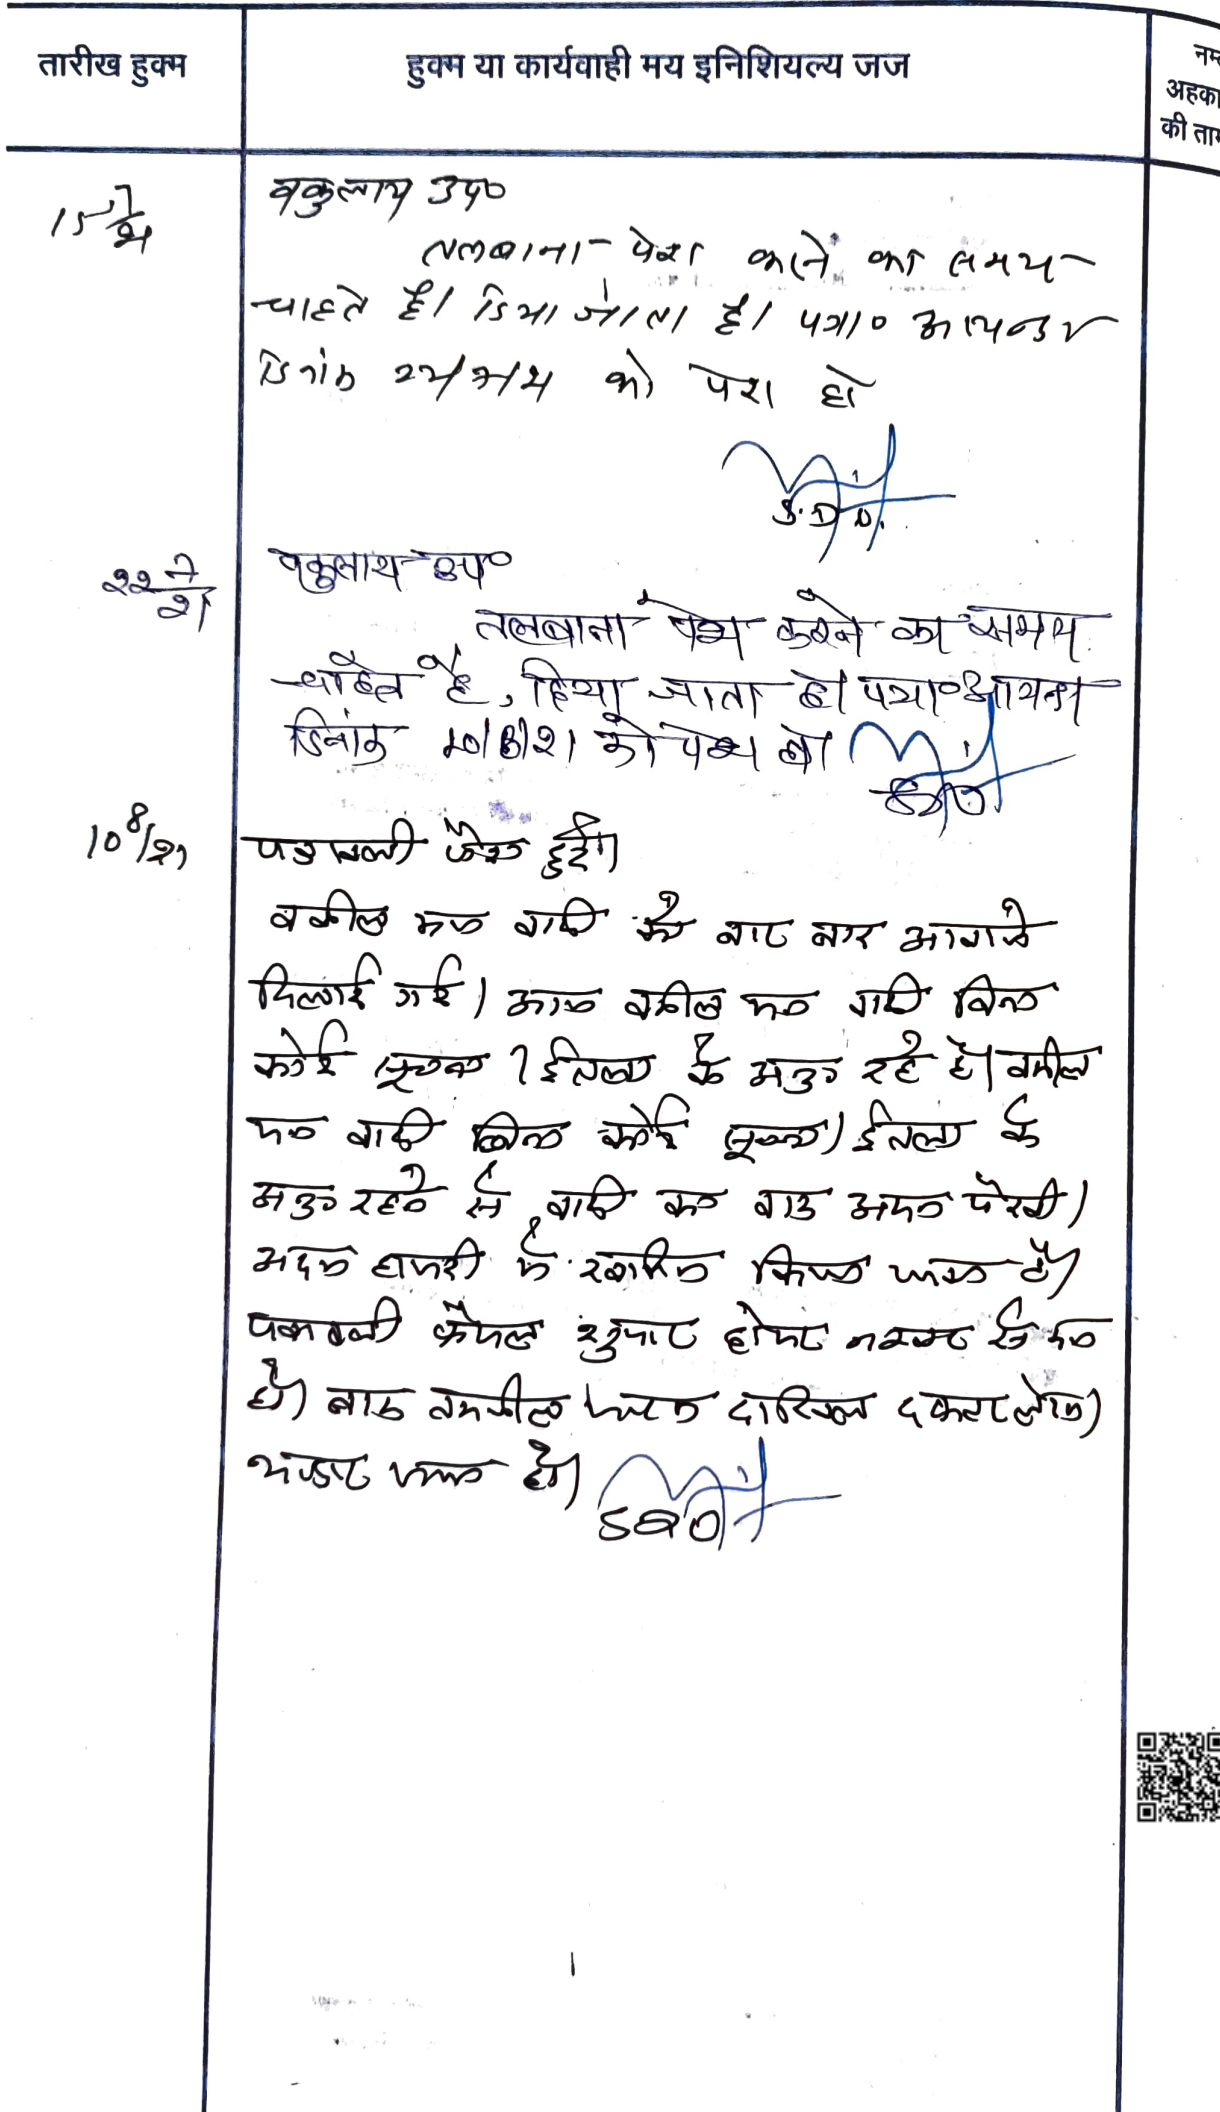 तारीख हुक्म
हुक्म या कार्यवाही मय इनिशियल्य जज
नम्
अहका
की ताम
15/7/21
वकुलाय उप०
तलबाना पेश करने का समय
चाहते है। दिया जाता है। पत्रा० आयन्दा
दिनांक को पेश हो
S.D.O.
22/7/21
वकुलाय उप०
तलबाना पेश करने का समय
चाहते है, दिया जाता है। पत्रा० आयन्दा
दिनांक 10/8/21 को पेश हो।
SDO
10/8/21
पत्रावली पेश हुई।
वकील वादी को बार बार आवाजे
दिलाई गई। वकील वादी बिना
कोई सूचना / ईतला के रहे है। वकील
वादी बिना कोई सूचना / ईतला के
रहने से वादी का वाद अदम पैरवी /
अदम हाजरी मे खारिज किया जाता है।
पत्रावली फैसल शुमार होकर नम्बर से कम
हो। बाद तकमील दाखिल दफ्तर
हो।
SDO